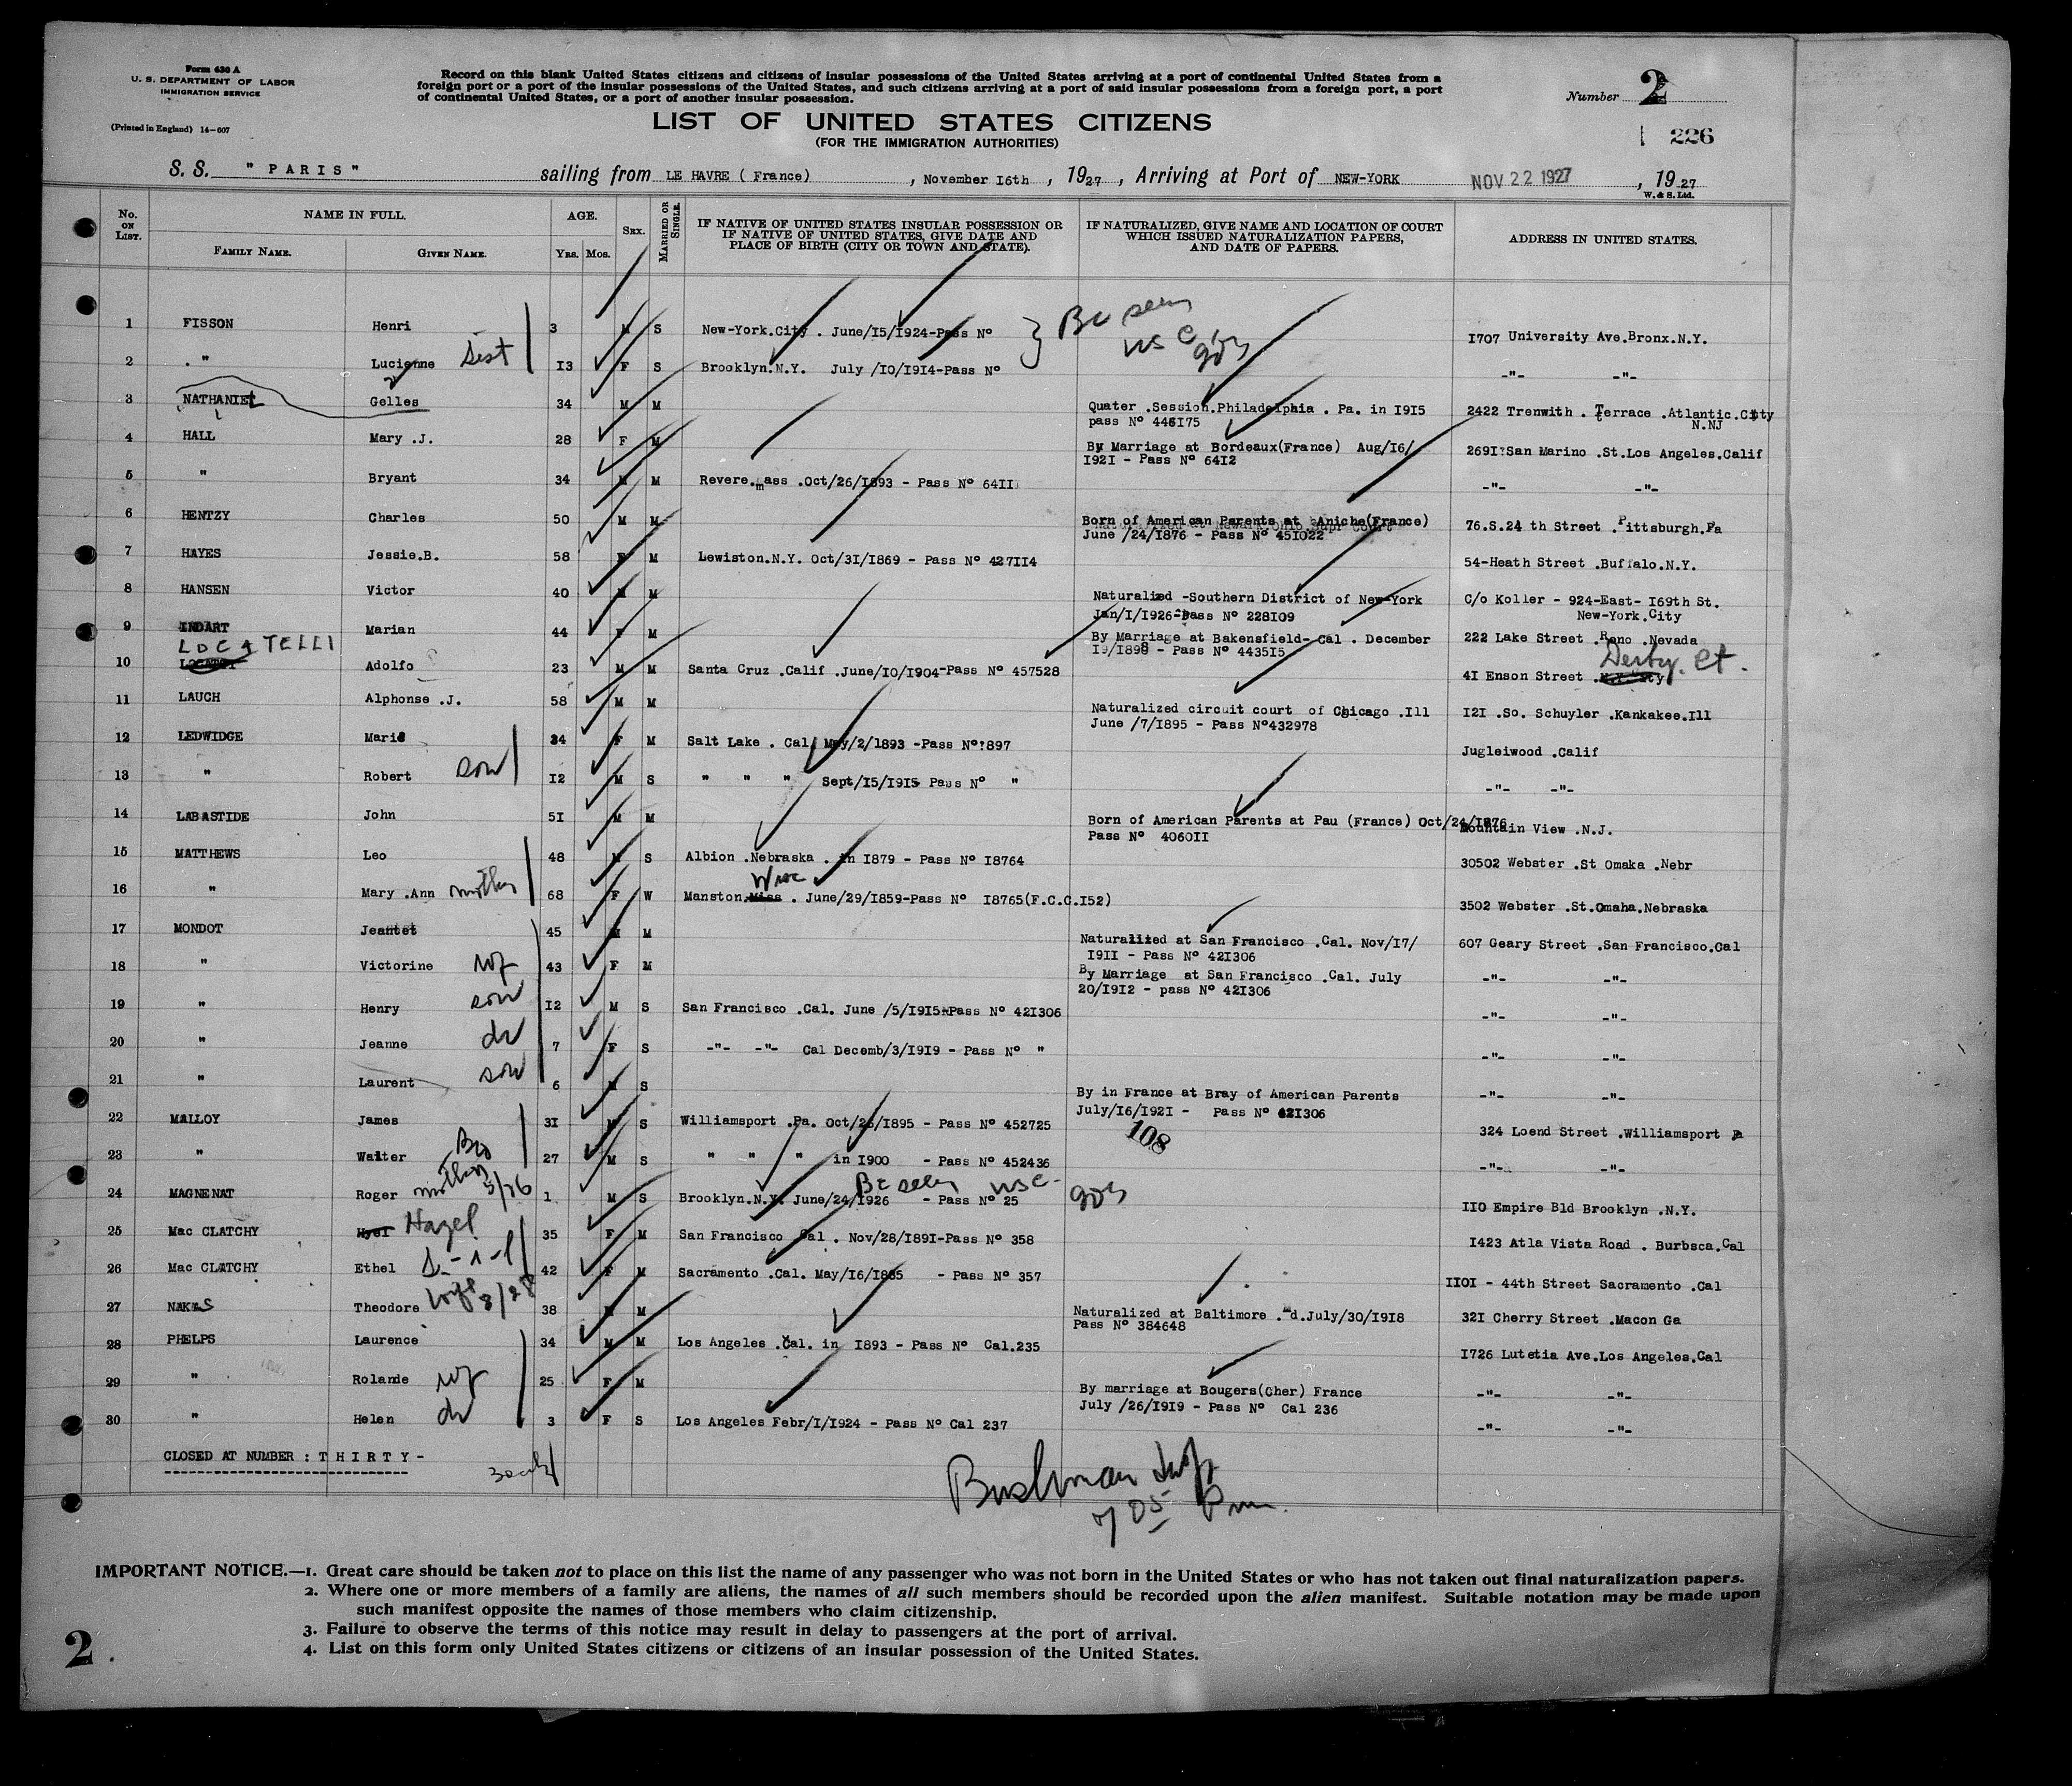 Form 630 A
U. S. DEPARTMENT OF LABOR
IMMIGRATION SERVICE
(Printed in England) 14-607
Record on this blank United States citizens and citizens of insular possessions of the United States arriving at a port of continental United States from a
foreign port or a port of the insular possessions of the United States, and such citizens arriving at a port of said insular possessions from a foreign port, a port
of continental United States, or a port of another insular possession.
Number 2
LIST OF UNITED STATES CITIZENS
(FOR THE IMMIGRATION AUTHORITIES)
226
S. S. " PARIS " sailing from LE HAVRE ( France) , November 16th , 1927 , Arriving at Port of NEW-YORK NOV 22 1927 , 1927
W. & S. Ltd.
No. ON LIST. NAME IN FULL. AGE. SEX. MARRIED OR SINGLE. IF NATIVE OF UNITED STATES INSULAR POSSESSION OR IF NATIVE OF UNITED STATES, GIVE DATE AND PLACE OF BIRTH (CITY OR TOWN AND STATE). IF NATURALIZED, GIVE NAME AND LOCATION OF COURT WHICH ISSUED NATURALIZATION PAPERS, AND DATE OF PAPERS. ADDRESS IN UNITED STATES.
FAMILY NAME. GIVEN NAME. YRS. MOS.
1 FISSON Henri 3 M S New-York.City . June/15/1924-Pass Nº 1707 University Ave.Bronx.N.Y.
2 " Lucienne Sist 13 F S Brooklyn.N.Y. July /10/1914-Pass Nº -"- -"-
3 NATHANIEL Gelles 34 M M Quater .Session.Philadelphia . Pa. in 1915 2422 Trenwith . Terrace .Atlantic.City
pass Nº 446175 N.NJ
4 HALL Mary .J. 28 F M By Marriage at Bordeaux(France) Aug/16/ 2691 San Marino .St.Los Angeles.Calif
1921 - Pass Nº 6412
5 " Bryant 34 M M Revere.mass .Oct/26/1893 - Pass Nº 6411 -"- -"-
6 HENTZY Charles 50 M M Born of American Parents at Aniche(France) 76.S.24 th Street .Pittsburgh.Pa
June /24/1876 - Pass Nº 451022
7 HAYES Jessie.B. 58 F M Lewiston.N.Y. Oct/31/1869 - Pass Nº 427114 54-Heath Street .Buffalo.N.Y.
8 HANSEN Victor 40 M M Naturalized -Southern District of New-York C/o Koller - 924-East- 169th St.
Jan/1/1926-Pass Nº 228109 New-York.City
9 INDART Marian 44 F M By Marriage at Bakensfield- Cal . December 222 Lake Street .Reno .Nevada
19/1898 - Pass Nº 443515
LOCATELLI
10 Adolfo 23 M M Santa Cruz .Calif .June/10/1904-Pass Nº 457528 41 Enson Street . Derby. Ct.
11 LAUCH Alphonse .J. 58 M M Naturalized circuit court of Chicago .Ill 121 .So. Schuyler .Kankakee.Ill
June /7/1895 - Pass Nº432978
12 LEDWIDGE Marie 34 F M Salt Lake . Cal May/2/1893 -Pass Nº 897 Jugleiwood .Calif
13 " Robert son 12 M S " " " Sept/15/1915 Pass Nº " -"- -"-
14 LABASTIDE John 51 M M Born of American Parents at Pau (France) Oct/24/1876 Mountain View .N.J.
Pass Nº 406011
15 MATTHEWS Leo 48 M S Albion .Nebraska . in 1879 - Pass Nº 18764 30502 Webster .St Omaka .Nebr
Wisc
16 " Mary .Ann mother 68 F W Manston.Miss . June/29/1859-Pass Nº 18765(F.C.C.152) 3502 Webster .St.Omaha.Nebraska
17 MONDOT Jeantet 45 M M Naturalized at San Francisco .Cal. Nov/17/ 607 Geary Street .San Francisco.Cal
1911 - Pass Nº 421306
18 " Victorine wf 43 F M By Marriage at San Francisco .Cal. July -"- -"-
20/1912 - pass Nº 421306
19 " Henry son 12 M S San Francisco .Cal. June /5/1915-Pass Nº 421306 -"- -"-
20 " Jeanne dr 7 F S -"- -"- Cal Decemb/3/1919 - Pass Nº " -"- -"-
21 " Laurent son 6 M S By in France at Bray of American Parents -"- -"-
July/16/1921 - Pass Nº 421306
22 MALLOY James 31 M S Williamsport .Pa. Oct/26/1895 - Pass Nº 452725 324 Loend Street .Williamsport Pa
108
23 " Walter Bro 27 M S " " " in 1900 - Pass Nº 452436 -"- -"-
24 MAGNENAT Roger mother 5/26 1 M S Brooklyn.N.Y. June/24/1926 - Pass Nº 25 110 Empire Bld Brooklyn .N.Y.
25 Mac CLATCHY Hazel 35 F M San Francisco Cal . Nov/28/1891-Pass Nº 358 1423 Atla Vista Road . Burbsca.Cal
26 Mac CLATCHY Ethel S-i-l 42 F M Sacramento .Cal. May/16/1885 - Pass Nº 357 1101 - 44th Street Sacramento .Cal
27 NAKAS Theodore wife 3/28 38 M M Naturalized at Baltimore .Md.July/30/1918 321 Cherry Street .Macon Ga
Pass Nº 384648
28 PHELPS Laurence 34 M M Los Angeles .Cal. in 1893 - Pass Nº Cal.235 1726 Lutetia Ave.Los Angeles.Cal
29 " Rolande wf 25 F M By marriage at Bougers(Cher) France -"- -"-
July /26/1919 - Pass Nº Cal 236
30 " Helen dr 3 F S Los Angeles Febr/1/1924 - Pass Nº Cal 237 -"- -"-
CLOSED AT NUMBER : T H I R T Y -
Bushman Insp
7 05 Pm.
IMPORTANT NOTICE.—1. Great care should be taken not to place on this list the name of any passenger who was not born in the United States or who has not taken out final naturalization papers.
2. Where one or more members of a family are aliens, the names of all such members should be recorded upon the alien manifest. Suitable notation may be made upon
such manifest opposite the names of those members who claim citizenship.
3. Failure to observe the terms of this notice may result in delay to passengers at the port of arrival.
4. List on this form only United States citizens or citizens of an insular possession of the United States.
2